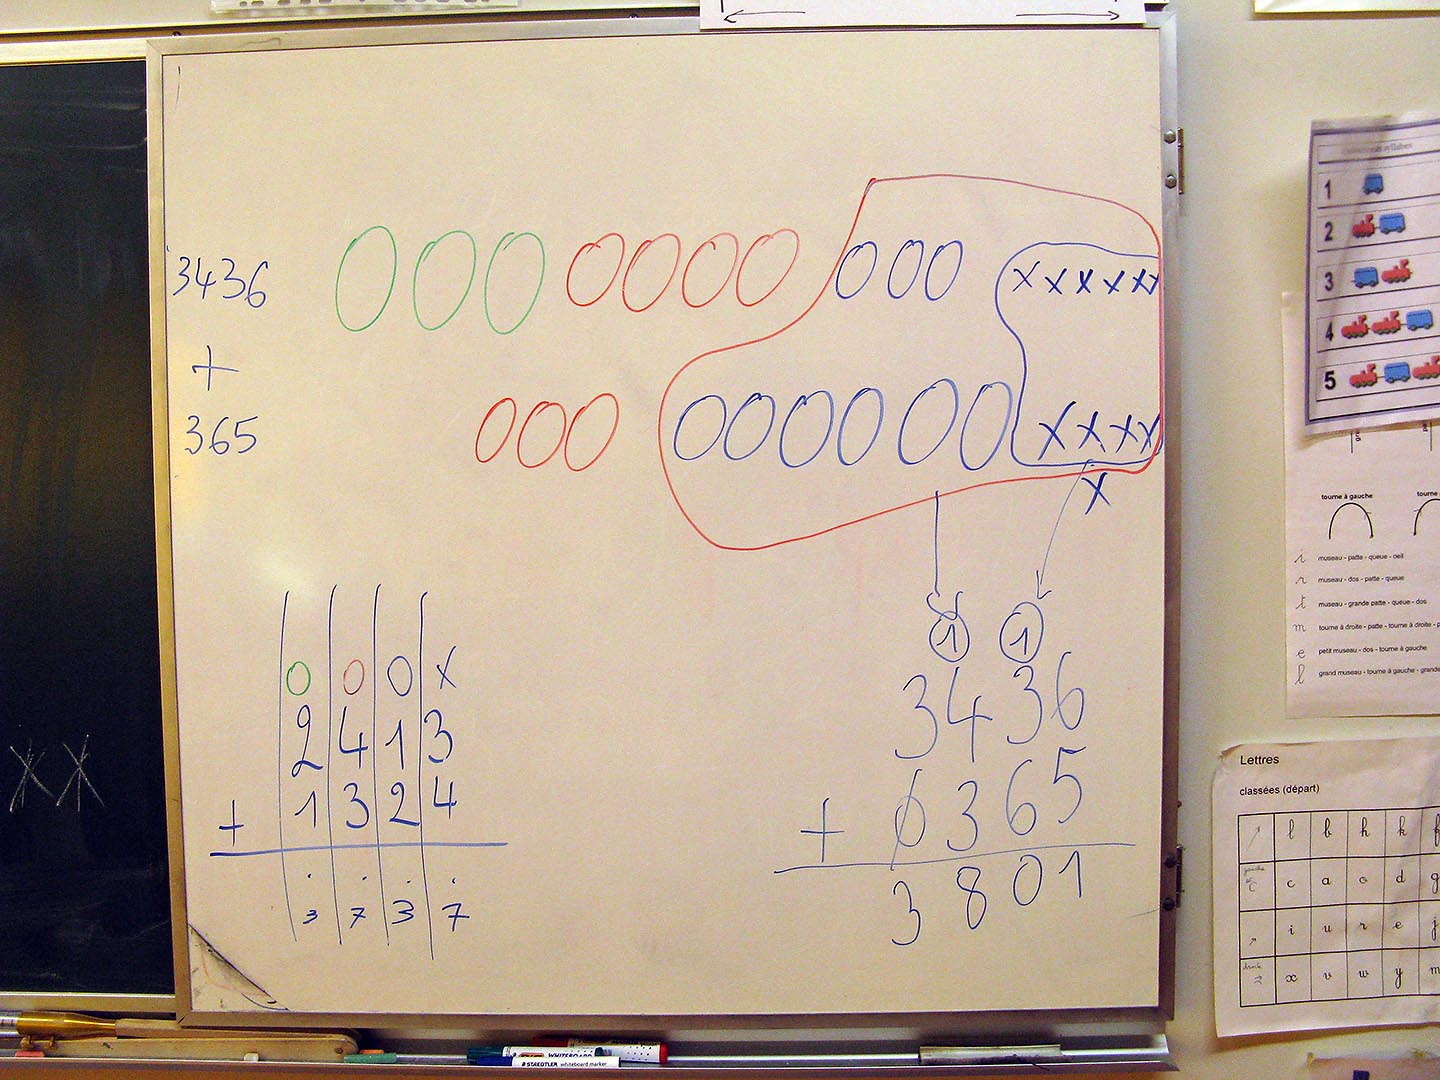 3436
+
365
X X X X X X
X X X X
X
0 0 0 X
2 4 1 3
+ 1 3 2 4
3 7 3 7
1 1
3436
+ 0365
3801
X X
1
2
3
4
5
tourne à gauche
tourne
i museau - patte - queue - oeil
r museau - dos - patte - queue
t museau - grande patte - queue - dos
m tourne à droite - patte - tourne à droite - p
e petit museau - dos - tourne à gauche
l grand museau - tourne à gauche - grande
Lettres
classées (départ)
l b h k f
c a o d g
i u r e j
x v w y m
WHITEBOARD
STAEDTLER whiteboard marker